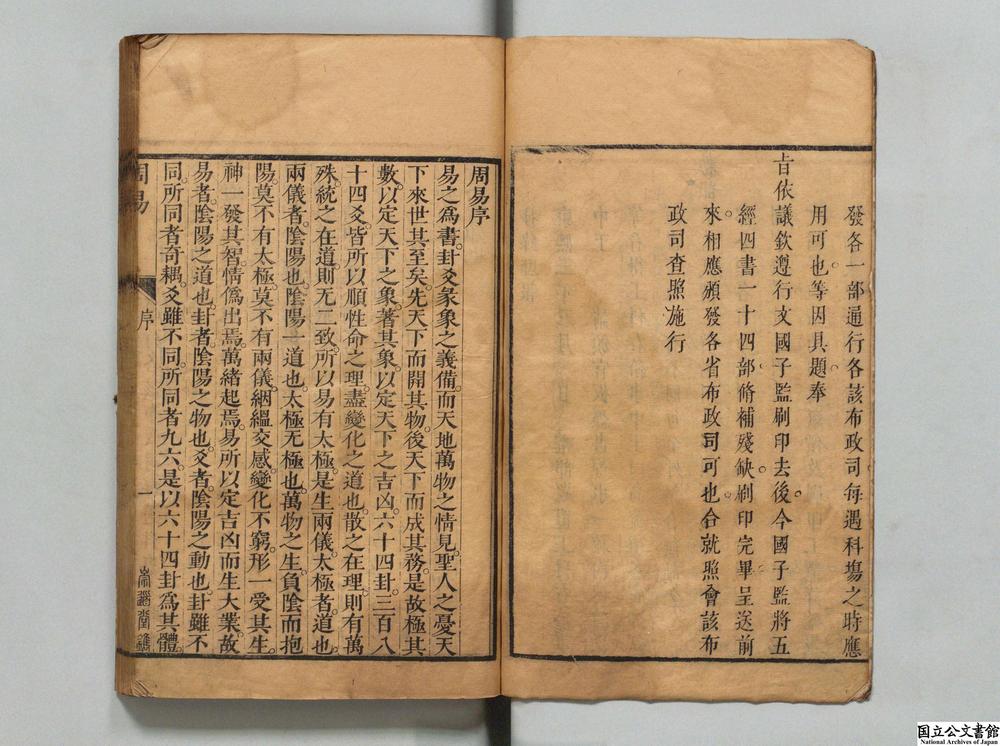 發各一部通行各該布政司每遇科塲之時應
用可也等因具題奉
旨依議欽遵行文國子監刷印去後今國子監將五
經四書一十四部修補殘缺刷印完畢呈送前
來相應頒發各省布政司可也合就照會該布
政司查照施行
周易序
易之爲書卦爻彖象之義備而天地萬物之情見聖人之憂天
下來世其至矣先天下而開其物後天下而成其務是故極其
數以定天下之象著其象以定天下之吉凶六十四卦三百八
十四爻皆所以順性命之理盡變化之道也散之在理則有萬
殊統之在道則无二致所以易有太極是生兩儀太極者道也
兩儀者陰陽也陰陽一道也太極无極也萬物之生負陰而抱
陽莫不有太極莫不有兩儀絪縕交感變化不窮形一受其生
神一發其智情僞出焉萬緒起焉易所以定吉凶而生大業故
易者陰陽之道也卦者陰陽之物也爻者陰陽之動也卦雖不
同所同者奇耦爻雖不同所同者九六是以六十四卦爲其體
周易 序 一 崇道堂鐫
国立公文書館
National Archives of Japan